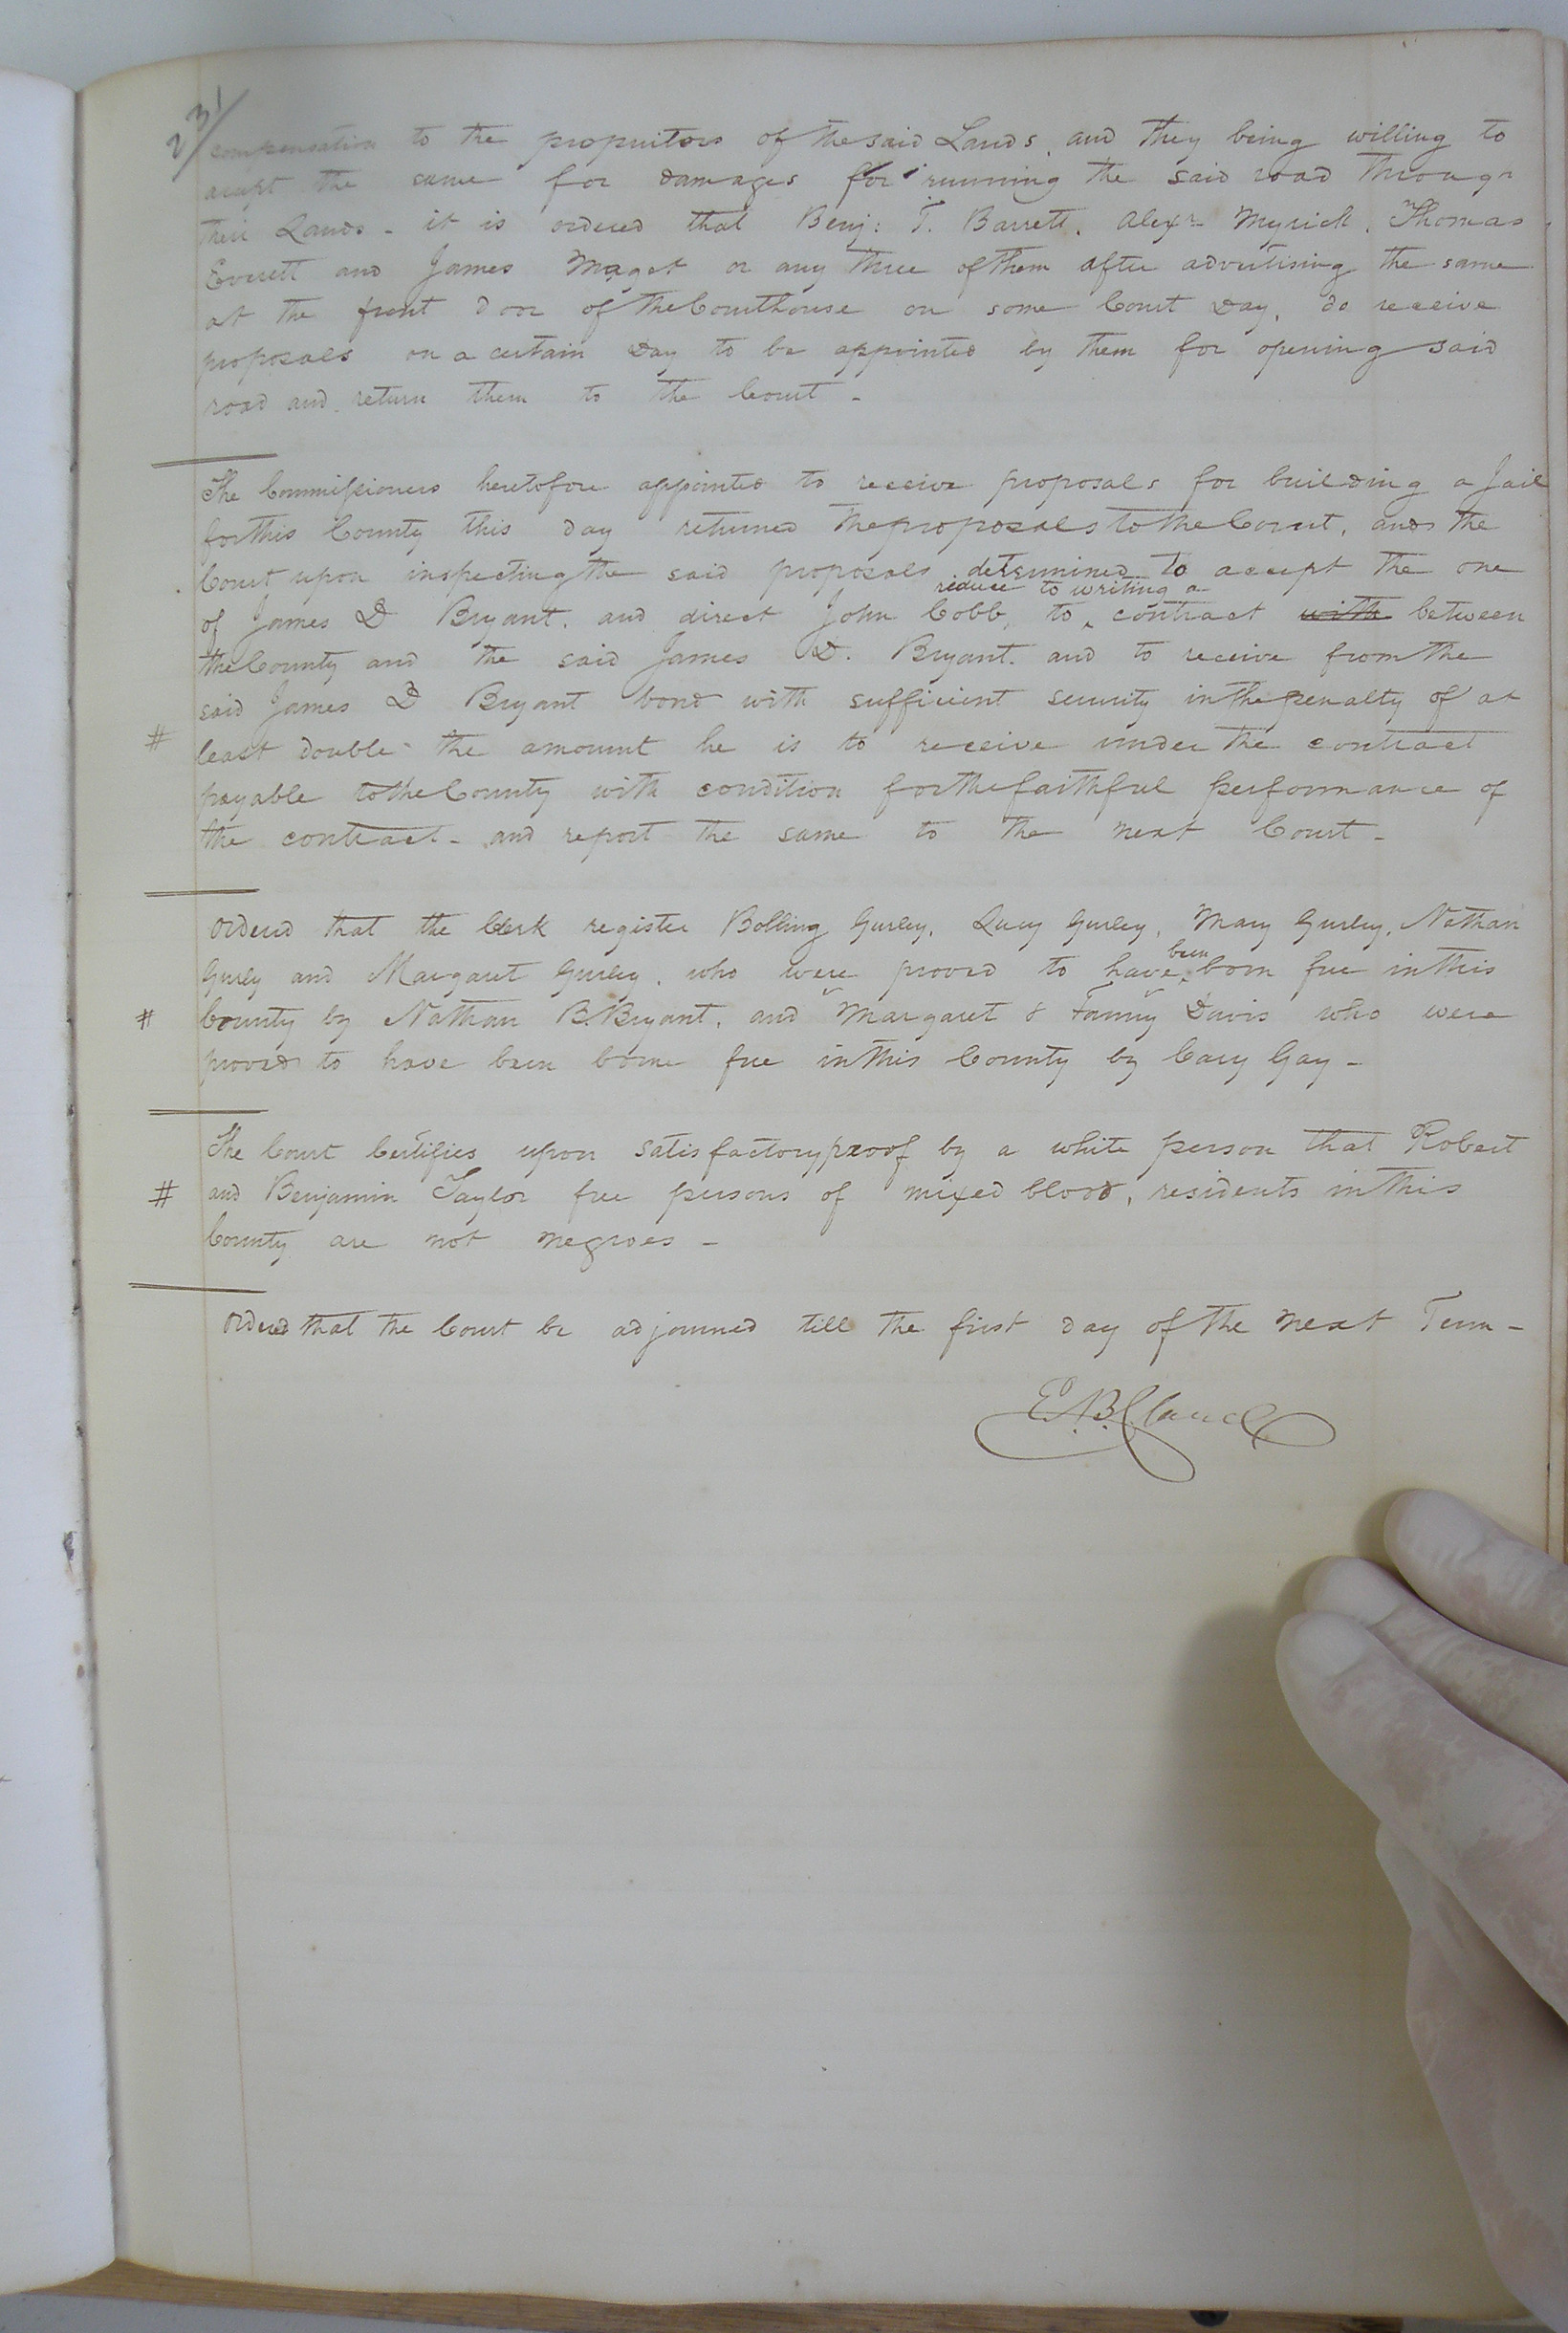 231
compensation to the propriitors of the said Lands, and they being willing to
accept the same for damages for running the said road through
their Lands - it is ordered that Benj: T. Barrett, Alexr Myrick, Thomas
Everett and James Maget or any three of them after advertising the same
at the front door of the Courthouse on some Court Day, do receive
proposals on a certain Day to be appointed by them for opening said
road and return them to the Court -
The Commissioners heretofore appointed to receive proposals for building a Jail
for this County this day returned the proposals to the Court, and the
Court upon inspecting the said proposals determined to accept the one
reduce to writing a
of James D Bryant, and direct John Cobb, to ‸ contract with between
the County and the said James D. Bryant. and to receive from the
said James D Bryant bond with sufficient security in the penalty of at
# least double the amount he is to receive under the contract
payable to the County with condition for the faithful performance of
the contract - and report the same to the next Court -
Ordered that the Clerk register Bolling Gurley, Lucy Gurley, Mary Gurley, Nathan
been
Gurley and Margaret Gurley, who were proved to have ‸ born free in this
# County by Nathan B. Bryant, and Margaret & Fanny Davis who were
proved to have been borne free in this County by Cary Gay -
The Court Certifies upon satisfactory proof by a white person that Robert
# and Benjamin Taylor free persons of mixed blood, residents in this
County are not negroes -
Ordered that the Court be adjourned till the first day of the next Term -